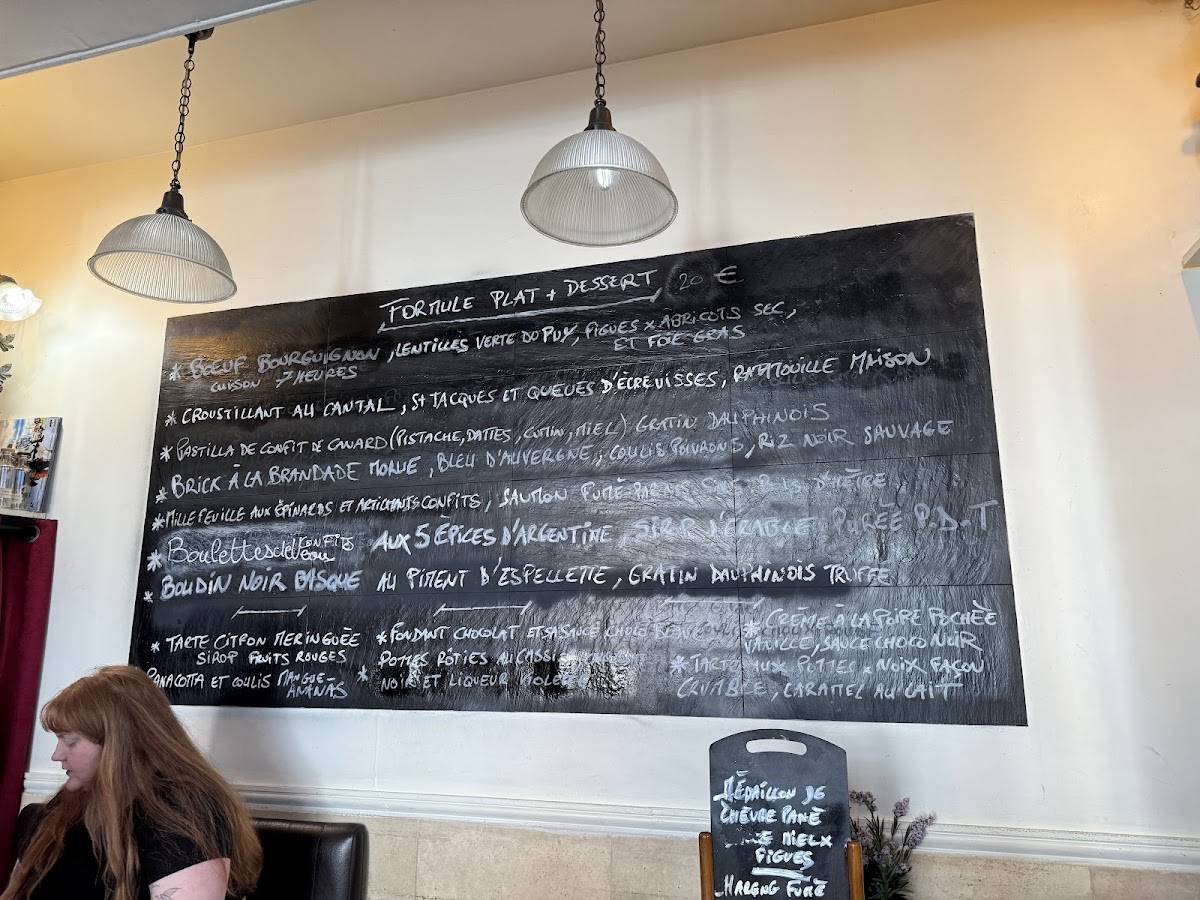 FORMULE PLAT + DESSERT 20 €
* BŒUF BOURGUIGNON, LENTILLES VERTE DU PUY, FIGUES x ABRICOTS SEC,
CUISON 7 HEURES ET FOIE GRAS
* CROUSTILLANT AU CANTAL, ST JACQUES ET QUEUES D'ÉCREVISSES, RATATOUILLE MAISON
* PASTILLA DE CONFIT DE CANARD (PISTACHE, DATTES, CUMIN, MIEL) GRATIN DAUPHINOIS
* BRICK À LA BRANDADE MORUE, BLEU D'AUVERGNE, COULIS POIVRONS, RIZ NOIR SAUVAGE
* MILLE FEUILLE AUX ÉPINARDS ET ARTICHAUTS CONFITS, SAUMON FUMÉ
* Boulettes de Veau CONFITS AUX 5 ÉPICES D'ARGENTINE, SIROP D'ÉRABLE PURÉE P.D.T
* BOUDIN NOIR BASQUE AU PIMENT D'ESPELLETTE, GRATIN DAUPHINOIS TRUFFE
* TARTE CITRON MERINGUÉE
SIROP FRUITS ROUGES
PANACOTTA ET COULIS MANGUE-
ANANAS
* FONDANT CHOCOLAT ET SA SAUCE CHOCO
* POMMES RÔTIES AU CASSIS
NOIR ET LIQUEUR VIOLETTE
* CRÈME À LA POIRE POCHÉE
VANILLE, SAUCE CHOCO NOIR
* TARTE AUX POMMES x NOIX FAÇON
CRUMBLE, CARAMEL AU LAIT
MÉDAILLON DE
CHÈVRE PANÉ
MIEL x
FIGUES
HARENG FUMÉ